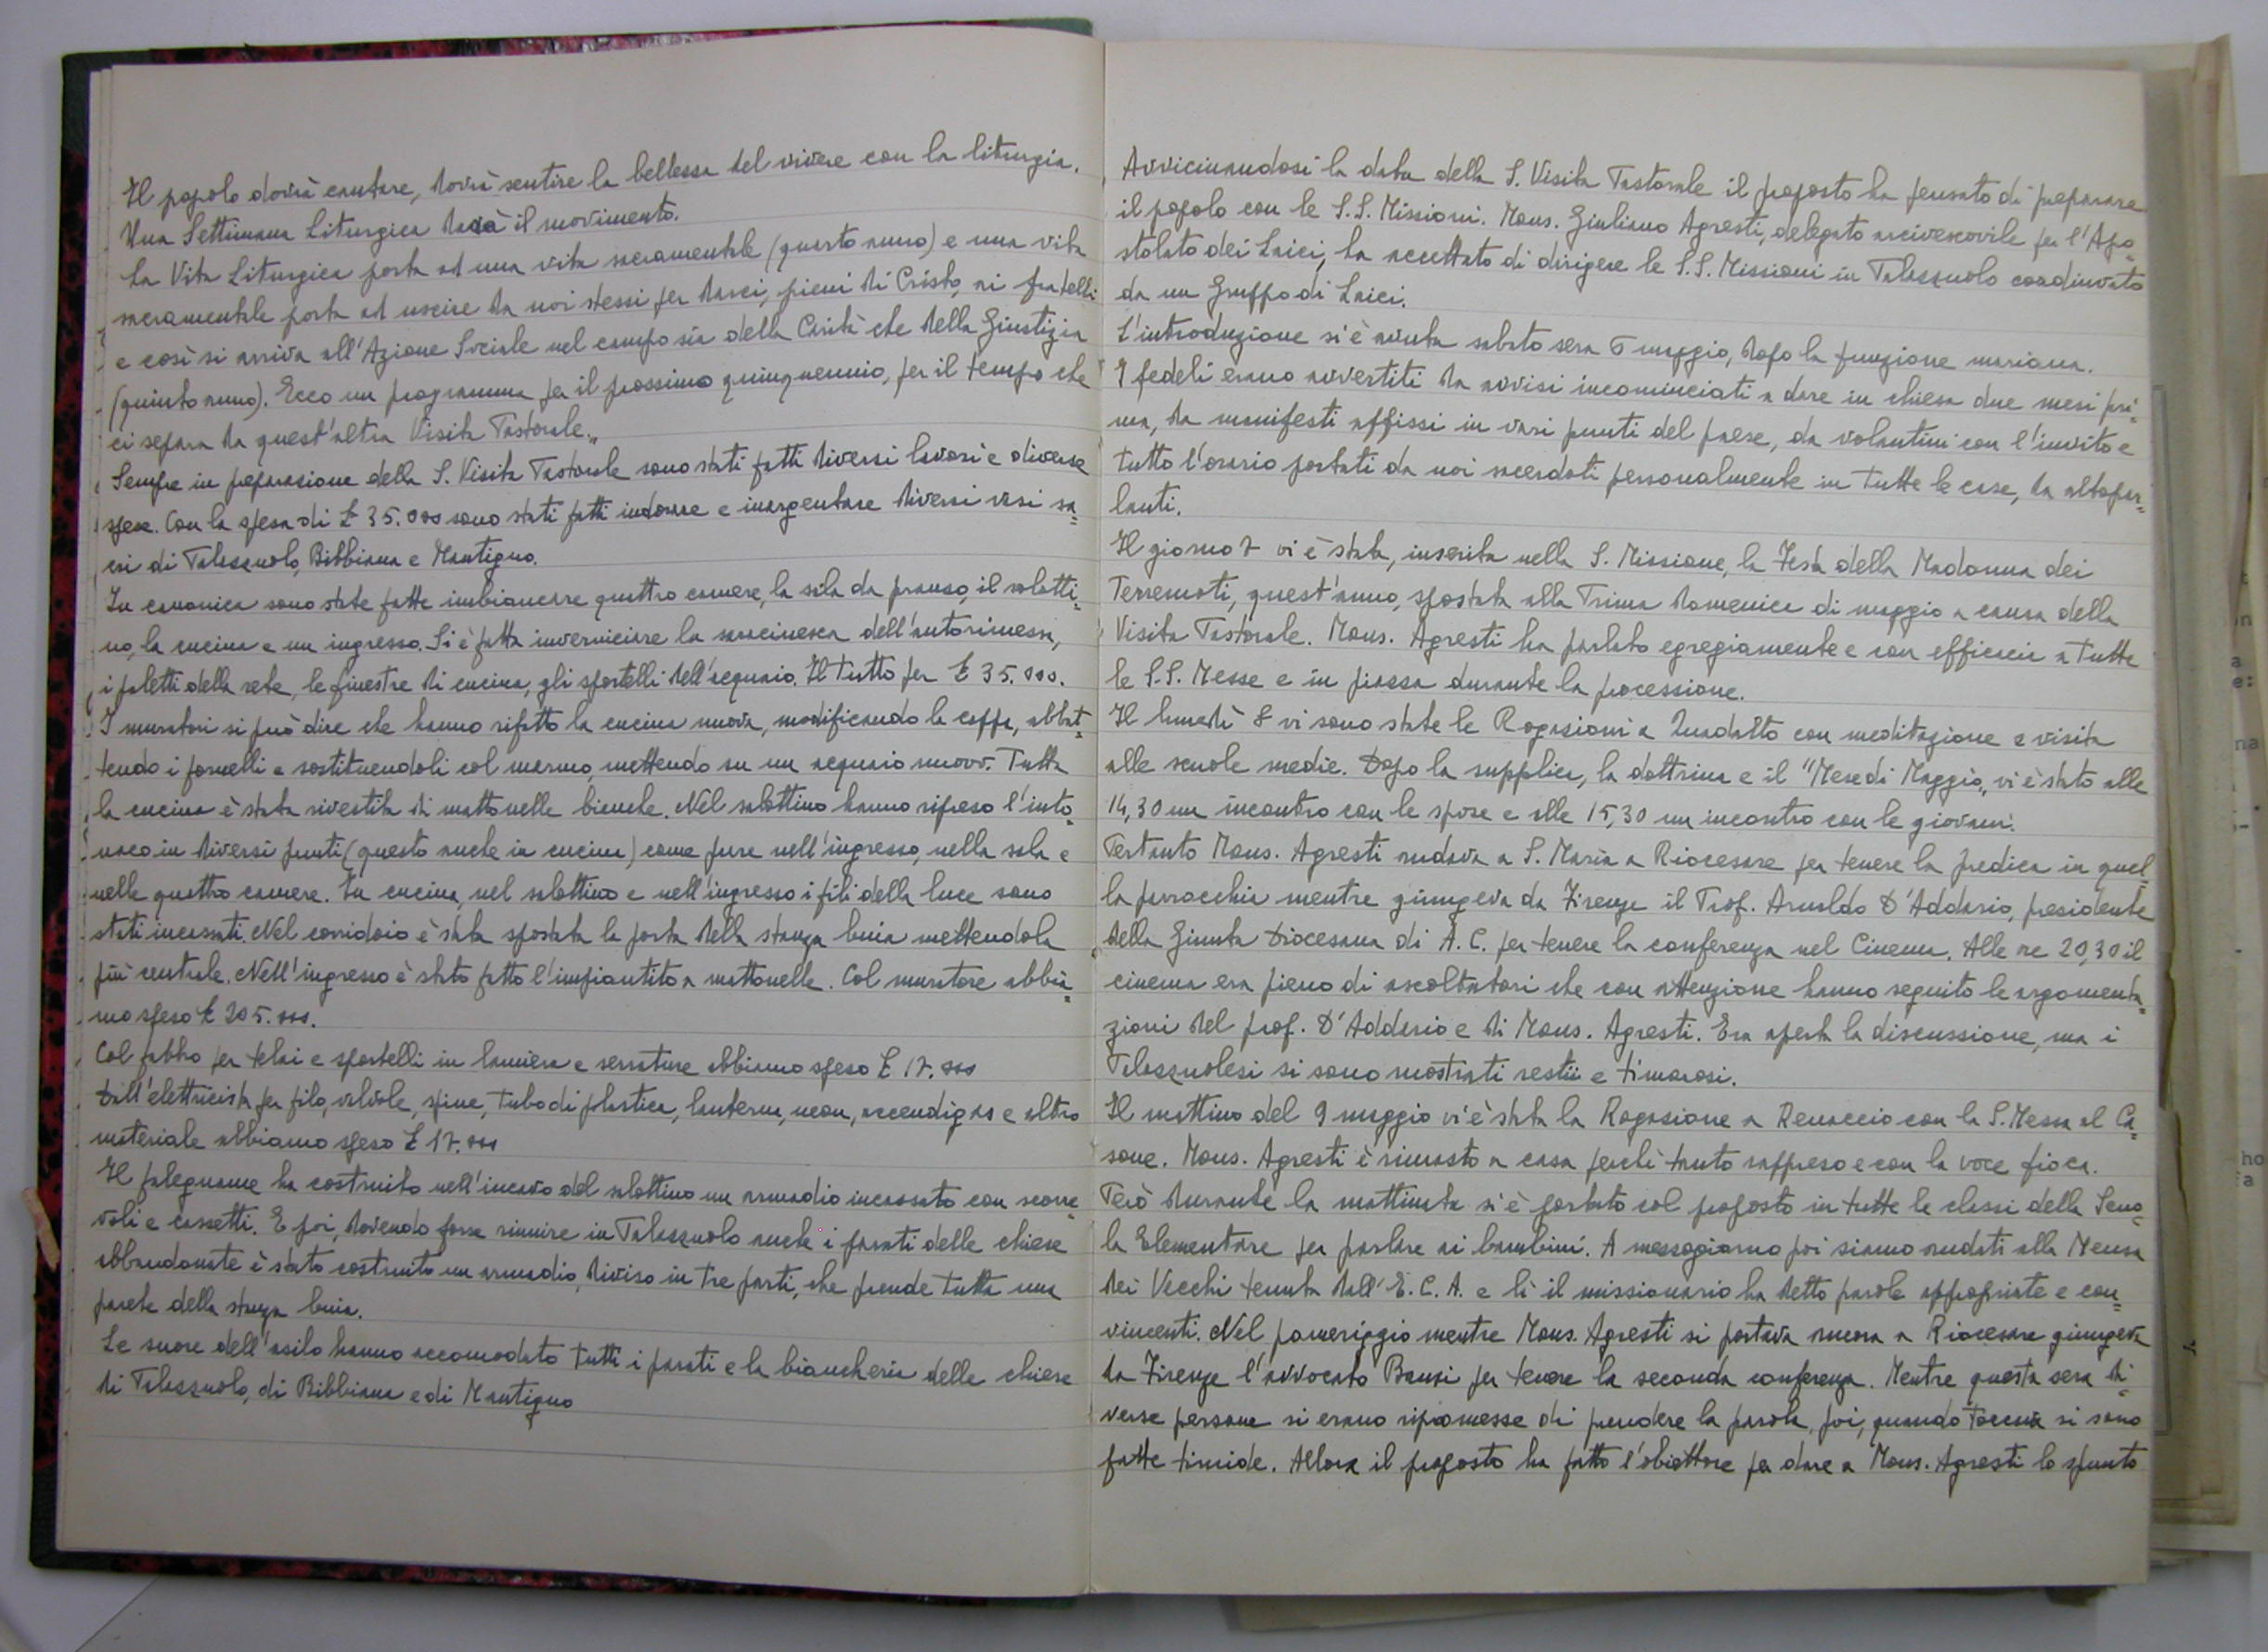 Il popolo dovrà cantare, dovrà sentire la bellezza del vivere con la liturgia.
Una Settimana Liturgica darà il movimento.
La Vita Liturgica porta ad una vita sacramentale (quarto anno) e una vita
sacramentale porta ad uscire da noi stessi per darci, pieni di Cristo, ai fratelli
e così si arriva all'Azione Sociale nel campo sia della Carità che della Giustizia
(quinto anno). Ecco un programma per il prossimo quinquennio, per il tempo che
ci separa da quest'altra Visita Pastorale.„
Sempre in preparazione della S. Visita Pastorale sono stati fatti diversi lavori e diverse
spese. Con la spesa di £ 35.000 sono stati fatti indorare e inargentare diversi vasi sa=
cri di Palazzuolo, Bibbiana e Mantigno.
In canonica sono state fatte imbiancare quattro camere, la sala da pranzo, il salotti=
no, la cucina e un ingresso. Si è fatta inverniciare la saracinesca dell'autorimessa,
i paletti della rete, le finestre di cucina, gli sportelli dell'acquaio. Il tutto per £ 35.000.
I muratori si può dire che hanno rifatto la cucina nuova, modificando la cappa, abbat=
tendo i fornelli e sostituendoli col marmo, mettendo su un acquaio nuovo. Tutta
la cucina è stata rivestita di mattonelle bianche. Nel salottino hanno ripreso l'into=
naco in diversi punti (questo anche in cucina) come pure nell'ingresso, nella sala e
nelle quattro camere. In cucina, nel salottino e nell'ingresso i fili della luce sono
stati incassati. Nel corridoio è stata spostata la porta della stanza buia mettendola
più centrale. Nell'ingresso è stato fatto l'impiantito a mattonelle. Col muratore abbia=
mo speso £ 205.000.
Col fabbro per telai e sportelli in lamiera e serrature abbiamo speso £ 17.000
Dall'elettricista per filo, valvole, spine, tubo di plastica, lanterna, neon, accendigas e altro
materiale abbiamo speso £ 17.000
Il falegname ha costruito nell'incavo del salottino un armadio incassato con scorre=
voli e cassetti. E poi, dovendo forse riunire in Palazzuolo anche i parati delle chiese
abbandonate è stato costruito un armadio, diviso in tre parti, che prende tutta una
parete della stanza buia.
Le suore dell'asilo hanno accomodato tutti i parati e la biancheria delle chiese
di Palazzuolo, di Bibbiana e di Mantigno
Avvicinandosi la data della S. Visita Pastorale il proposto ha pensato di preparare
il popolo con le S.S. Missioni. Mons. Giuliano Agresti, delegato arcivescovile per l'Apo=
stolato dei Laici, ha accettato di dirigere le S.S. Missioni in Palazzuolo coadiuvato
da un Gruppo di Laici.
L'introduzione si è avuta sabato sera 6 maggio, dopo la funzione mariana.
I fedeli erano avvertiti da avvisi incominciati a dare in chiesa due mesi pri=
ma, da manifesti affissi in vari punti del paese, da volantini con l'invito e
tutto l'orario portati da noi sacerdoti personalmente in tutte le case, da altopar=
lanti.
Il giorno 7 vi è stata, inserita nella S. Missione, la Festa della Madonna dei
Terremoti, quest'anno, spostata alla Prima domenica di maggio a causa della
Visita Pastorale. Mons. Agresti ha parlato egregiamente e con efficacia a tutte
le S.S. Messe e in piazza durante la processione.
Il lunedì 8 vi sono state le Rogazioni a Quadalto con meditazione e visita
alle scuole medie. Dopo la supplica, la dottrina e il "Mese di Maggio„ vi è stato alle
14,30 un incontro con le spose e alle 15,30 un incontro con le giovani.
Pertanto Mons. Agresti andava a S. Maria a Riocesare per tenere la predica in quel=
la parrocchia mentre giungeva da Firenze il Prof. Arnaldo D'Addario, presidente
della Giunta Diocesana di A. C. per tenere la conferenza nel Cinema. Alle re 20,30 il
cinema era pieno di ascoltatori che con attenzione hanno seguito le argomenta=
zioni del prof. D'Addario e di Mons. Agresti. Era aperta la discussione, ma i
Palazzuolesi si sono mostrati restii e timorosi.
Il mattino del 9 maggio vi è stata la Rogazione a Renaccio con la S. Messa al Ca=
sone. Mons. Agresti è rimasto a casa perché tanto raffreso e con la voce fioca.
Però durante la mattinata si è portato col proposto in tutte le classi della Scuo=
la Elementare per parlare ai bambini. A mezzogiorno poi siamo andati alla Mensa
dei Vecchi tenuta dall'E. C. A. e lì il missionario ha detto parole appropriate e con=
vincenti. Nel pomeriggio mentre Mons. Agresti si portava ancora a Riocesare giungeva
da Firenze l'avvocato Bausi per tenere la seconda conferenza. Mentre questa sera di=
verse persone si erano ripromesse di prendere la parola, poi, quando toccava si sono
fatte timide. Allora il proposto ha fatto l'obiettore per dare a Mons. Agresti lo spunto